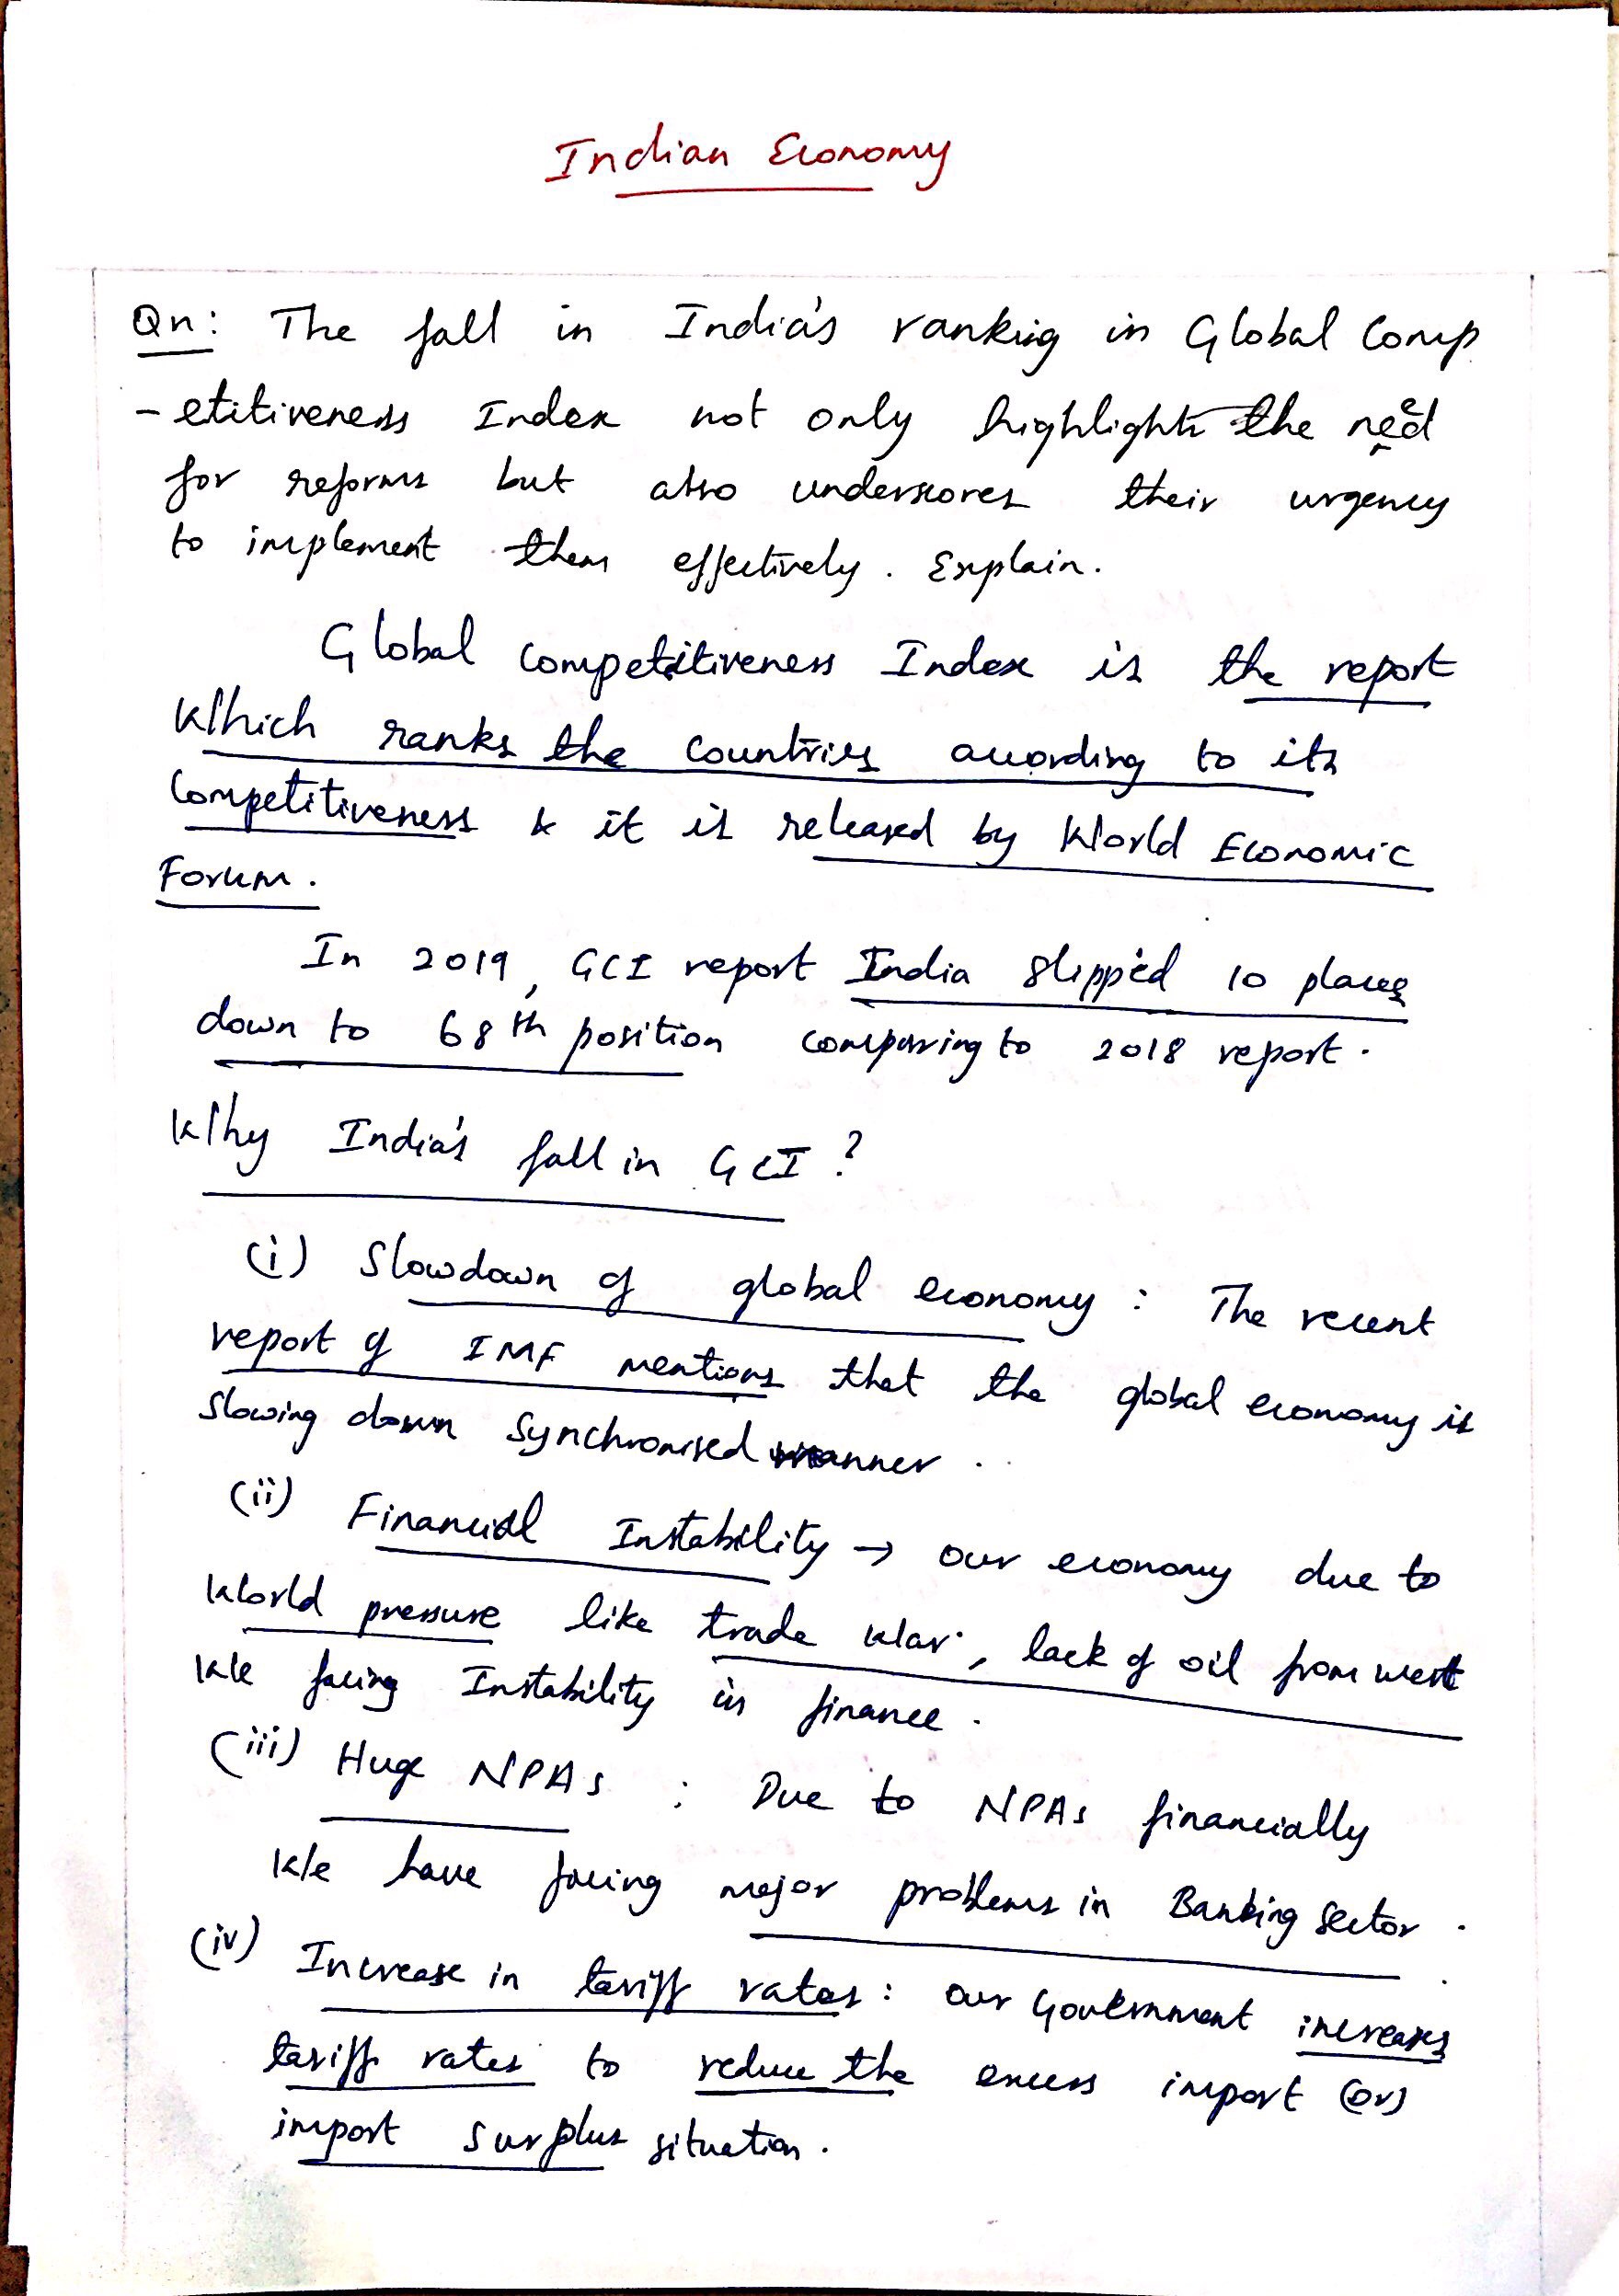 Indian Economy
Qn: The fall in India's ranking in Global Comp
- etitiveness Index not only highlights the need
for reforms but also underscores their urgency
to implement them effectively. Explain.
Global Competitiveness Index is the report
Which ranks the Countries according to its
Competitiveness & it is released by World Economic
Forum.
In 2019, GCI report India slipped 10 places
down to 68th position comparing to 2018 report.
Why India's fall in GCI?
(i) Slowdown of global economy : The recent
report of IMF mentions that the global economy is
Slowing down Synchronised manner.
(ii) Financial Instability → our economy due to
World pressure like trade war, lack of oil from west
We facing Instability in finance.
(iii) Huge NPAs : Due to NPAs financially
We have facing major problems in Banking Sector.
(iv) Increase in tariff rates: our Government increases
tariff rates to reduce the excess import (or)
import surplus situation.